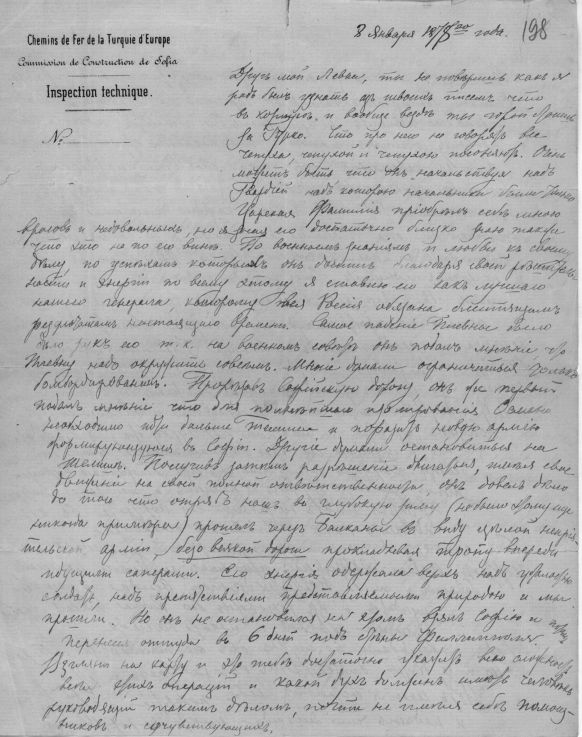 Chemins de Fer de la Turquie d'Europe
Commission de Construction de Sofia
Inspection technique.
№
198
8 Января года.
Другъ мой ты не повѣришь какъ я
радъ былъ узнать изъ твоихъ писемъ что
и вообще ты горой
за Гурко. Что про него не говорятъ все
чепуха, чепухой и чепухою погоняютъ. Очень
можетъ быть что онъ начальствуя надъ
Гвардіей надъ которою начальники были только
Царская Фамилія пріобрѣлъ себѣ много
враговъ и недовольныхъ, но я зная его достаточно близко знаю также
что это не по его винѣ. По военнымъ знаніямъ и любви къ своему
дѣлу по успѣхамъ которыхъ онъ достигъ благодаря своей
и энергіи по всему этому я ставлю его какъ лучшаго
нашего генерала, которому вся Россія обязана блестящимъ
результатамъ настоящаго времени. Самое паденіе Плевны было
дѣло рукъ его т.к. на военномъ совѣтѣ онъ подалъ мнѣніе, что
Плевну надо окружить совсѣмъ. Многіе думали ограничиться только
бомбардированіемъ. Прорвавъ Софійскую дорогу, онъ же первый
подалъ мнѣніе что для полнѣйшаго Османа
необходимо идти дальше и поразить новую армію
формирующуюся въ Софіи. Другіе думали остановиться на
Получивъ затѣмъ разрѣшеніе двигаться,
на свой полной отвѣтственности, онъ довелъ дѣло
до того что отрядъ нашъ въ глубокую зиму
прошелъ черезъ Балканы въ виду цѣлой непрія
тельской арміи, безо всякой дороги прокладывая тропу впереди
идущими саперами. Его энергія одержала верхъ надъ усталью
солдатъ, надъ препятствіями представляемыми природою и мы
прошли. Но онъ не остановился на этомъ взялъ Софію и
перенесся оттуда въ 6 дней подъ стѣны
Взгляни на карту и это тебѣ достаточно укажетъ всю сложность
всѣхъ этихъ операцій и какой духъ долженъ имѣть человѣкъ
руководящій такимъ дѣломъ, почти не имѣя себѣ помощ
никовъ и сочувствующихъ.